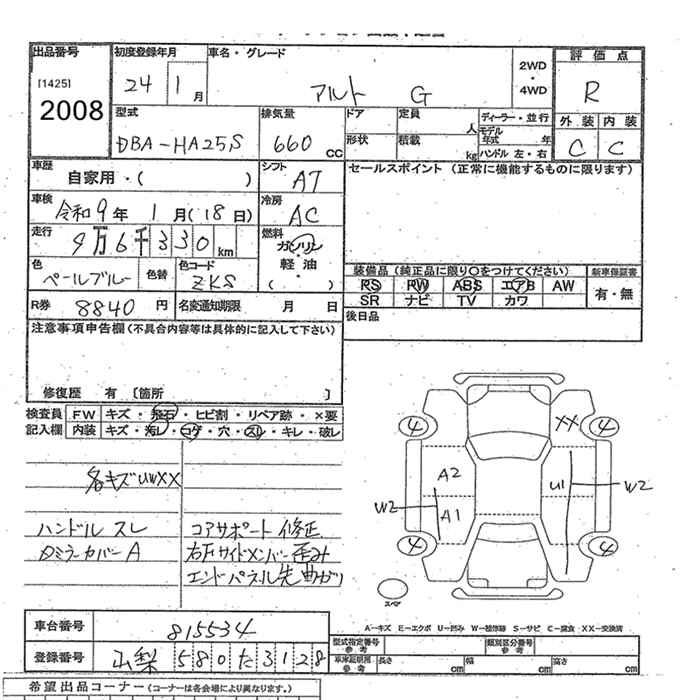 出品番号 初度登録年月 車名・グレード 評価点
[1425] 2008
24 1月 アルト G 2WD・4WD R
型式 排気量 ドア 定員 ディーラー・並行 外装 内装
DBA-HA25S 660 CC 人 モデル年式 年 C C
形状 積載 kg ハンドル 左・右
車歴 シフト セールスポイント (正常に機能するものに限ります)
自家用・( ) AT
車検 令和9年 1月(18日) 冷房 AC
走行 9万6千330km 燃料 ガソリン・軽油 ( )
色 ペールブルー 色替 色コード ZKS
装備品 (純正品に限り〇をつけてください) 新車保証書
PS PW ABS エアB AW 有・無
SR ナビ TV カワ
R券 8840円 名変通知期限 月 日 後日品
注意事項申告欄 (不具合内容等は具体的に記入して下さい)
修復歴 有 〔箇所
検査員 FW キズ・飛石・ヒビ割・リペア跡・×要
記入欄 内装 キズ・汚レ・コゲ・穴・スレ・キレ・破レ
4 XX 4
各キズUWXX
A2 U1 W2
W2 A1
ハンドル スレ コアサポート 修正
ミラーカバーA 右Fサイドメンバー 歪み
エンドパネル先曲がり
4 4
スペア
A-キズ E-エクボ U-凹み W-補修跡 S-サビ C-腐食 XX-交換済
車台番号 815534
型式指定番号 参考 類別区分番号 参考
登録番号 山梨 580 た 3128
車庫証明用 参考 長さ cm 幅 cm 高さ cm
希望出品コーナー (コーナーは各会場により異なります。)